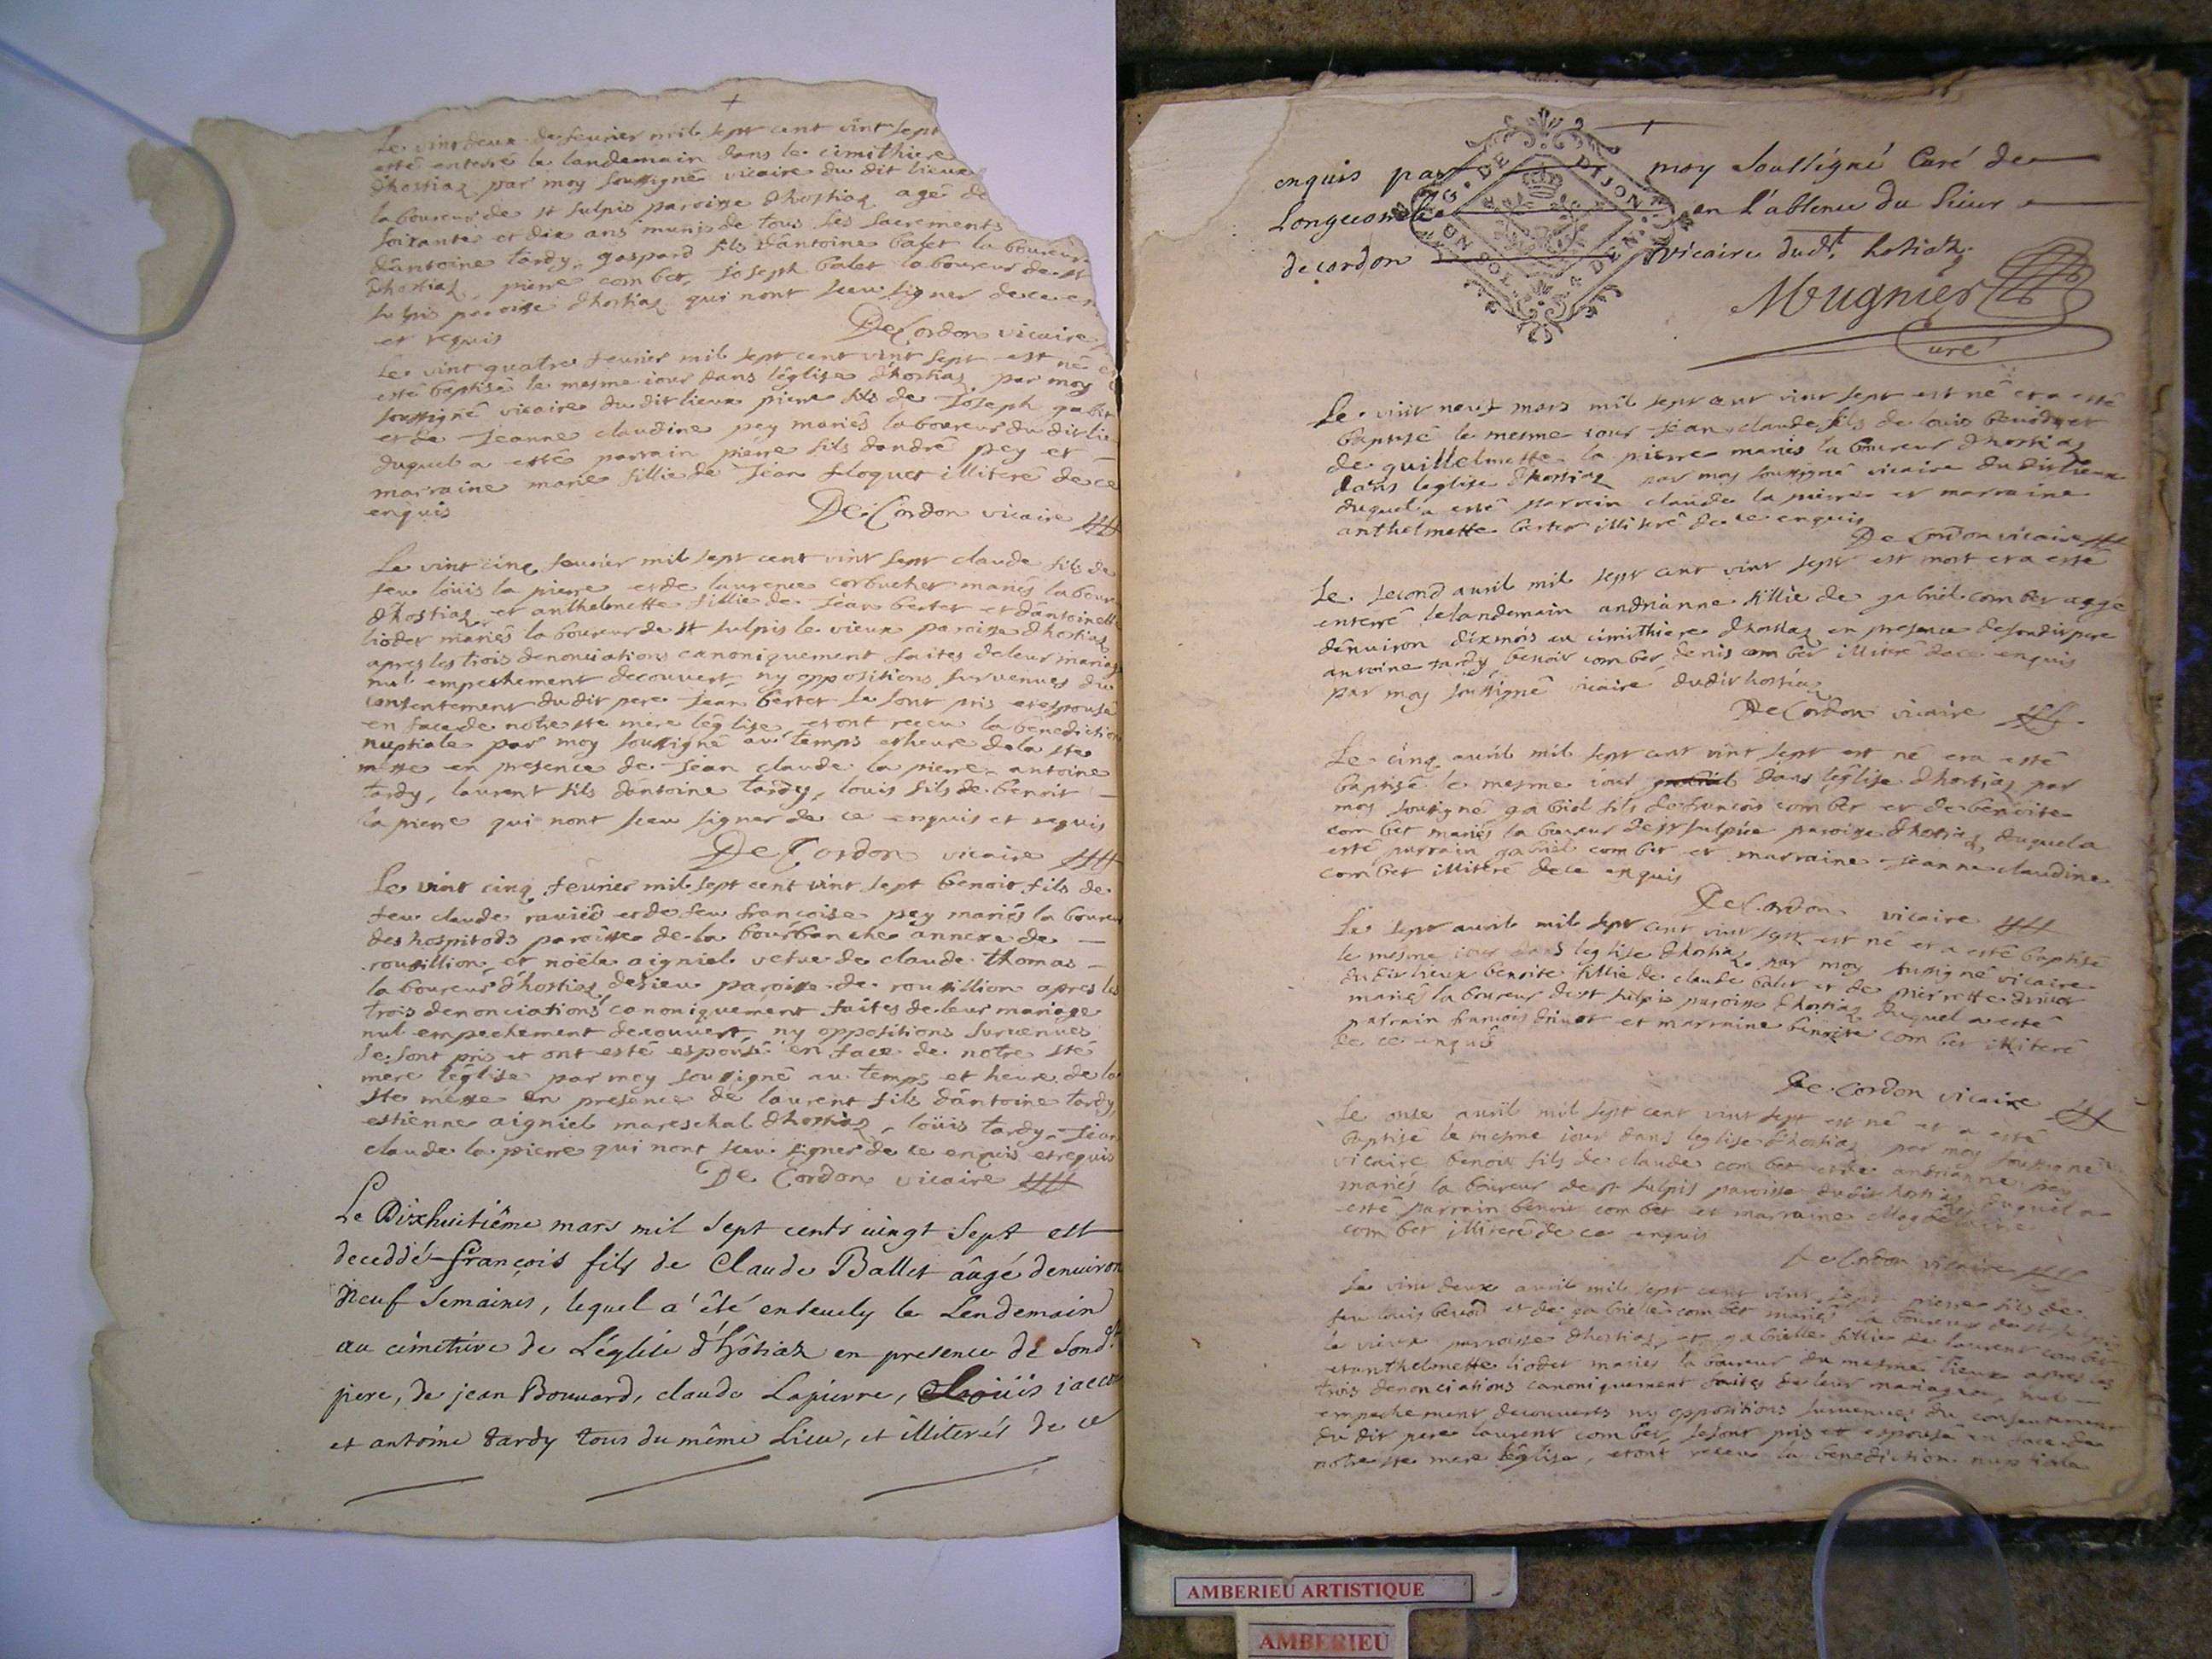 Le vint deux de feurier mil sept cent vint sept
esté enterré le landemain dans le cimithiere
d'hostiaz par moy soussigné vicaire du dit lieux
laboureur de st sulpis paroisse d'hostiaz agé de
soixante et dix ans munis de tous les sacrements
d'antoine tardy, gaspard fils d'antoine balet laboureur
d'hostiaz, pierre combet, joseph balet laboureur de st
sulpis paroisse d'hostiaz qui nont sceu signer de ce en
et requis
De Cordon vicaire
Le vint quatre feurier mil sept cent vint sept est né
esté baptisé le mesme iour dans l'église d'hostiaz par moy
soussigné vicaire du dit lieux pierre fils de Joseph
et de Jeanne claudine pey mariés laboureur du dit lie
duquel a esté parrain pierre fils d'andré pey et
marraine marie fillie de Jean floquet illiteré de ce
enquis
De Cordon vicaire
Le vint cinq feurier mil sept cent vint sept claude fils de
feu loüis la pierre et de laurence corbuchet mariés labour
d'hostiaz, et anthelmette fillie de Jean bertet et d'antoinett
liodet mariés laboureur de st sulpis le vieux paroisse d'hostiaz
apres les trois denonciations canoniquement faites de leur mariage
nul empeschement decouvert ny oppositions survenues du
consentement du dit pere Jean bertet se sont pris et espousé
en face de notre ste mere l'église et ont receu la benediction
nuptiale par moy soussigné au temps et heure de la ste
messe en presence de Jean claude la pierre antoine
tardy, laurent fils d'antoine tardy, louis fils de benoit
la pierre qui nont sceu signer de ce enquis et requis
De Cordon vicaire
Le vint cinq feurier mil sept cent vint sept benoit fils de
feu claude ravied et de feu françoise pey mariés laboureu
des hospitods paroisse de la bourbanche annexe de
rousillion, et noële aigniel vefue de claude thomas
laboureur d'hostiaz, paroisse de rousillion apres les
trois denonciations canoniquement faites de leur mariage
nul empechement decouvert, ny oppositions survenues
se sont pris et ont esté espousé en face de notre ste
mere l'église par moy soussigné au temps et heure de la
ste messe en presence de laurent fils d'antoine tardy
estienne aigniel mareschal d'hostiaz, loüis tardy, Jean
claude la pierre qui nont sceu signer de ce enquis et requis
De Cordon vicaire
Le Dixhuitième mars mil sept cents vingt sept est
deceddé françois fils de Claude Ballet âugé denviron
neuf semaines, lequel a été ensevely le Lendemain
au cimetiere de L'église d'hôtiaz en presence de sond.t
pere, de jean Bouvard, claude Lapierre, Loüis
et antoine tardy tous du même Lieu, et illiterés de ce
enquis par moy soussigné Curé de
Longecombe en L'absence du sieur
decordon vicaire dud.t hotiaz
Mugnier
Curé
Le vint neuf mars mil sept cent vint sept est né et a esté
baptisé le mesme iour Jean claude fils de louis et
de guillelmette la pierre mariés laboureur d'hostiaz
dans leglise d'hostiaz par moy soussigné vicaire du dit lieux
duquel a esté parrain claude la pierre et marraine
anthelmette bertet illiteré de ce enquis
De Cordon vicaire
Le second avril mil sept cent vint sept est mort et a esté
enterré le landemain andrianne fillie de gabriel combet agge
d'environ dix mois au cimithiere d'hostiaz en presence de son dit pere
antoine tardy, benoit combet, denis combet illiteré de ce enquis
par moy soussigné vicaire du dit hostiaz
De Cordon vicaire
Le cinq avril mil sept cent vint sept est né et a esté
baptisé le mesme iour dans l'église d'hostiaz par
moy soussigné gabriel fils de francois combet et de benoite
combet mariés laboureur de st sulpice paroisse d'hostiaz, duquel a
esté parrain gabriel combet et marraine Jeanne claudine
combet illiteré de ce enquis
De Cordon vicaire
Le sept avril mil sept cent vint sept est né et a esté baptisé
le mesme iour dans leglise d'hostiaz par moy sussigné vicaire
du dit lieux benoite fillie de claude balet et de pierrette drivot
mariés laboureur de st sulpis paroisse d'hostiaz duquel a esté
parrain francois drivot et marraine benoite combet illiteré
de ce enquis
De Cordon vicaire
Le onze avril mil sept cent vint sept est né et a esté
baptisé le mesme iour dans leglise d'hostiaz par moy soussigné
vicaire benoit fils de claude combet et de andrianne pey
mariés laboureur de st sulpis paroisse du dit hostiaz duquel a
esté parrain benoit combet et marraine
combet illiteré de ce enquis
De Cordon vicaire
Le vint deux avril mil sept cent vint sept pierre fils de
feu louis et de gabrielle combet mariés laboureur de st sulpis
le vieux parroisse d'hostiaz, et gabrielle fillie de laurent combet
et anthelmette liodet mariés laboureur du mesme lieux apres les
trois denonciations canoniquement faites de leur mariage, nul
empechement decouverts ny oppositions survenues du consentement
du dit pere laurent combet, se sont pris et espousé en face de
notre ste mere l'église, et ont receu la benediction nuptiale
AMBERIEU ARTISTIQUE
AMBERIEU